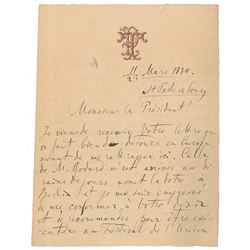 11/23 Mars 1890
St Petersbourg
Monsieur le Président!
Je viens de recevoir Votre lettre qui
a fait bien des détours en Europe
avant de me rattraper ici. Celle
de M. Godard m'est arrivée au
jours avant la
et je me suis empressé
de me conformer à Votre désir
et recommander pour être
au Festival de l'Union